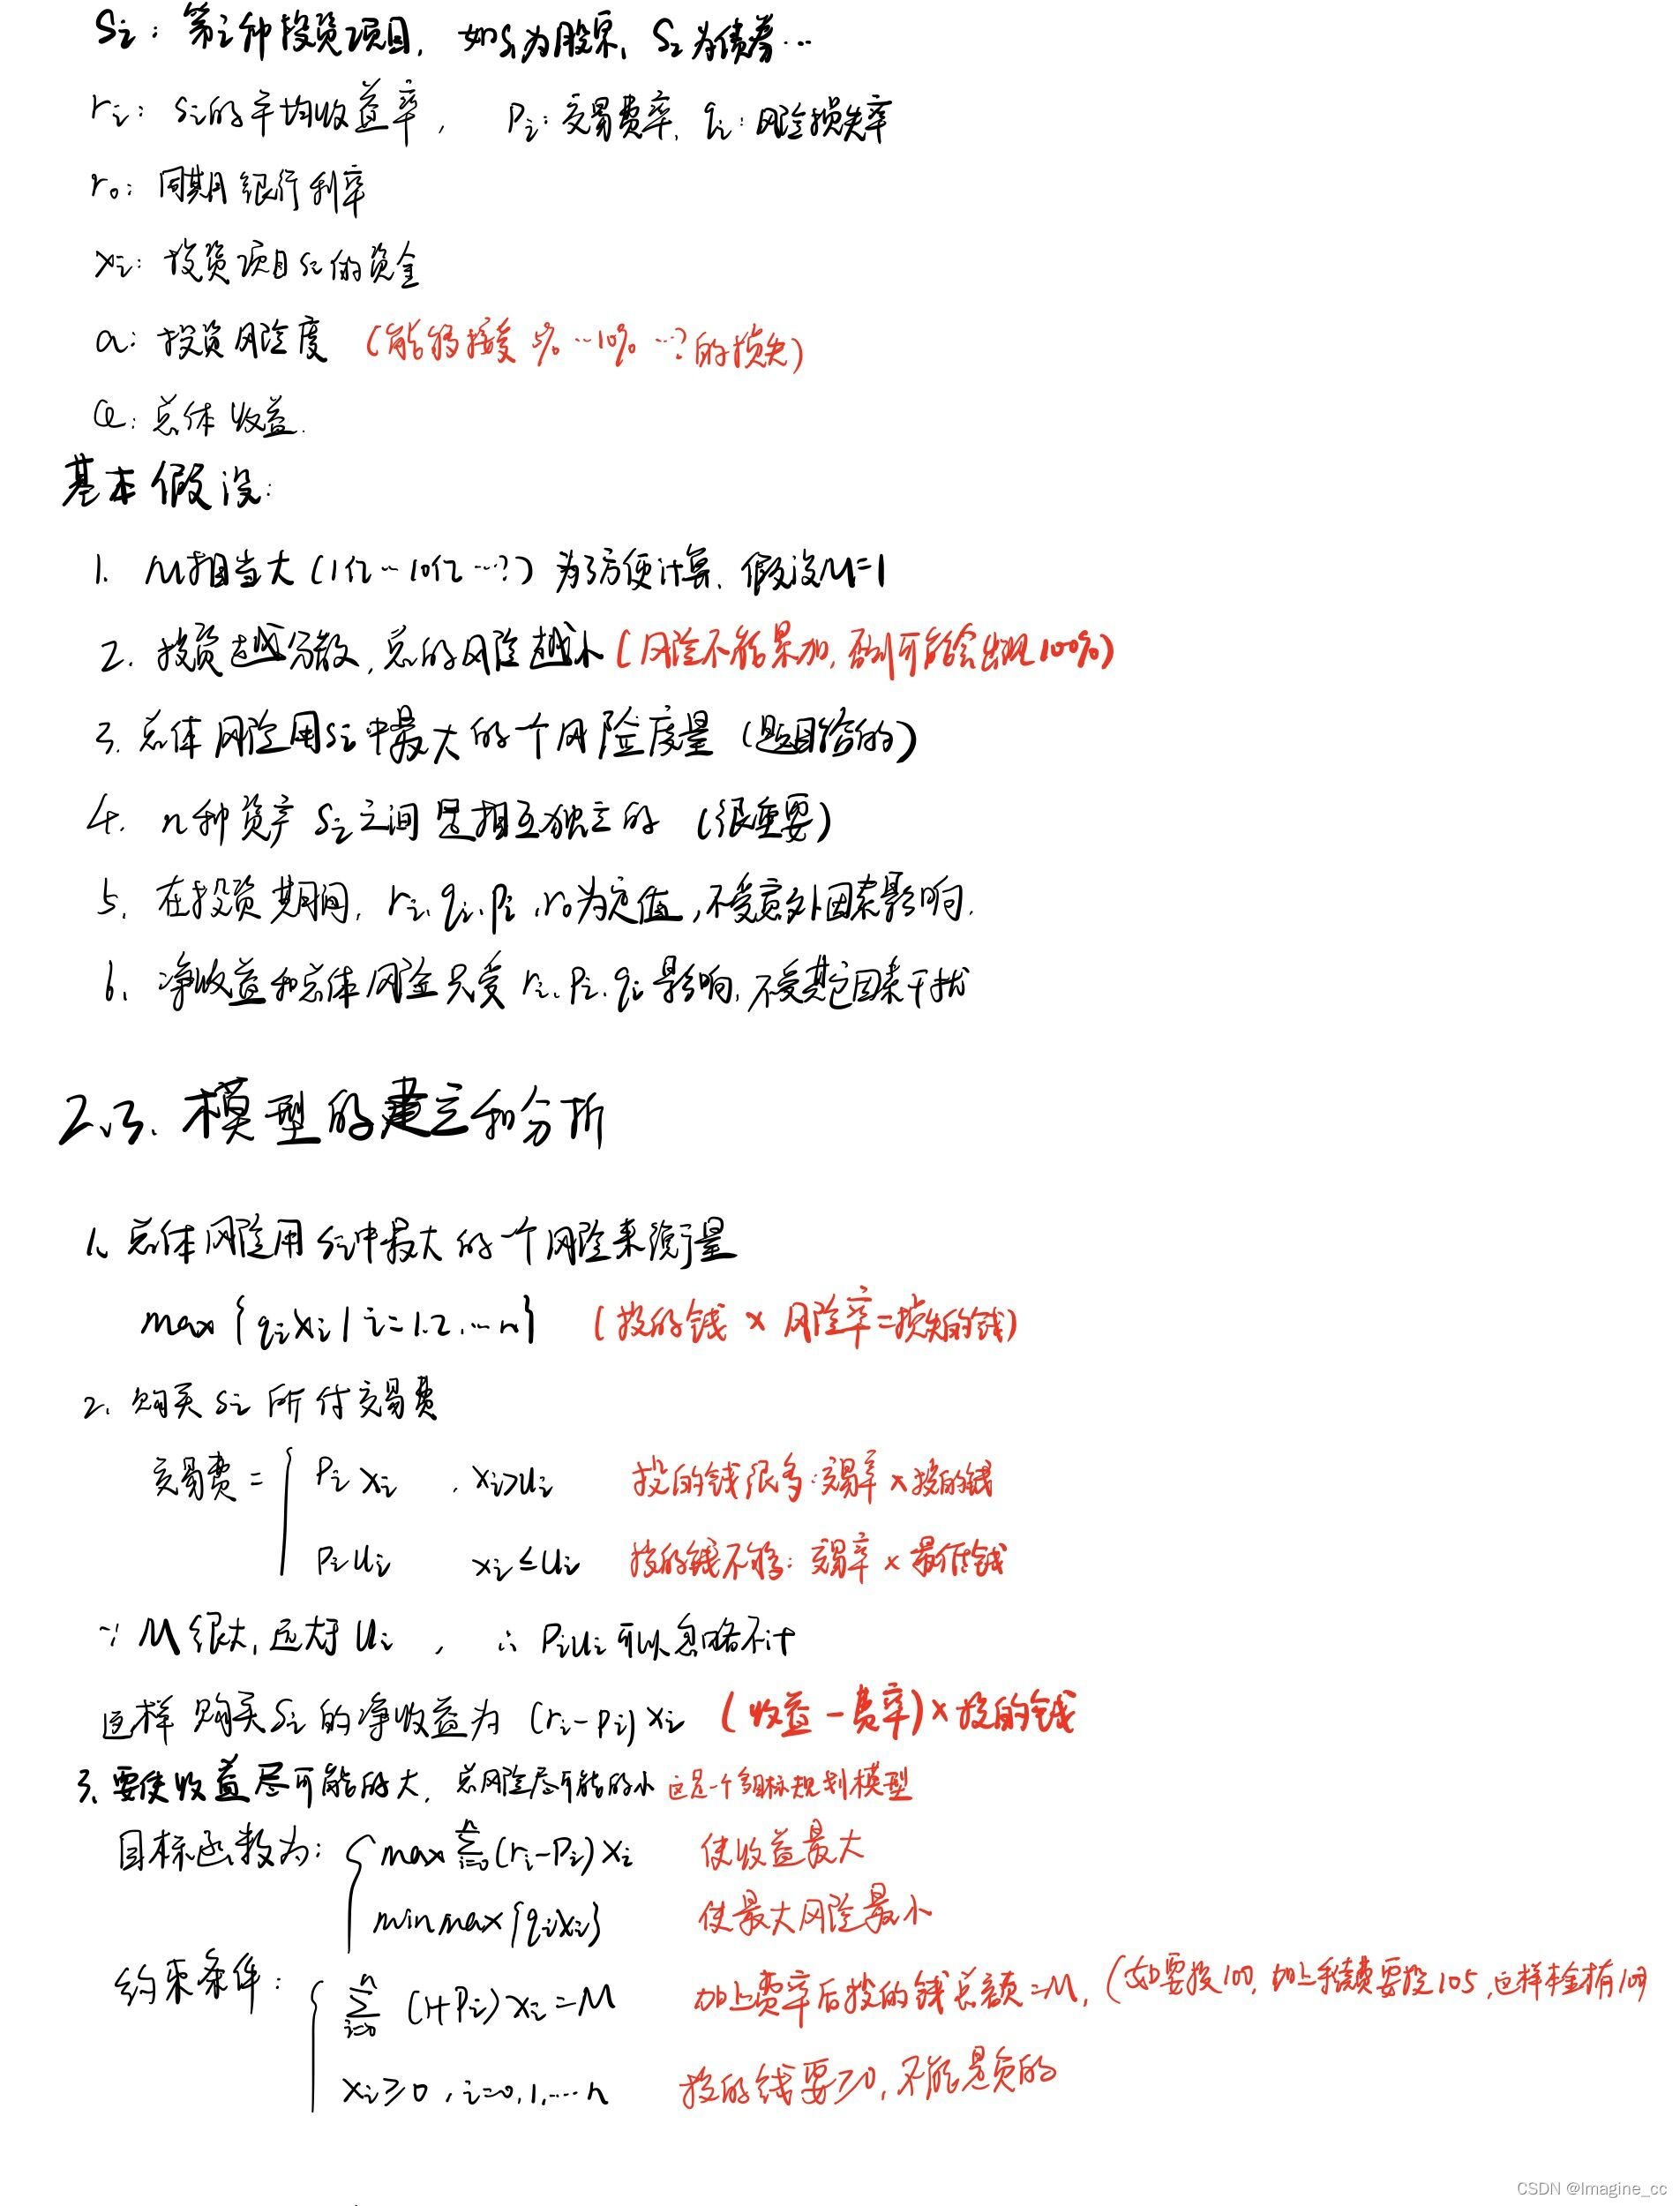 Si: 第i种投资项目, 如S1为股票、S2为债券…
ri: Si的平均收益率, Pi: 交易费率, qi: 风险损失率
r0: 同期银行利率
xi: 投资项目Si的资金
a: 投资风险度 (能够接受5%…10%…?的损失)
Q: 总体收益.
基本假设:
1. M相当大(1亿…10亿…?)为了方便计算, 假设M=1
2. 投资越分散, 总的风险越小(风险不能累加, 否则可能会出现100%)
3. 总体风险用Si中最大的一个风险度量 (题目给的)
4. n种资产Si之间是相互独立的 (很重要)
5. 在投资期间, ri、qi、pi、r0为定值, 不受意外因素影响.
6、净收益和总体风险只受ri、Pi、qi影响, 不受其它因素干扰
2、3、模型的建立和分析
1、总体风险用Si中最大的一个风险来衡量
max{qixi|i=1.2.…n} (投的钱×风险率=损失的钱)
2、购买Si所付交易费
交易费= { Pi xi , xi>ui 投的钱很多: 交易率×投的钱
Piui xi≤ui 投的钱不够: 交易率×最低钱
∵ M很大, 远大于ui, ∴ Piui可以忽略不计
这样购买Si的净收益为(ri-pi)xi (收益-费率)×投的钱
3、要使收益尽可能的大, 总风险尽可能的小 这是一个多目标规划模型
目标函数为: { max∑ⁿi=0(ri-Pi)xi 使收益最大
minmax{qixi} 使最大风险最小
约束条件: { ∑ⁿi=0 (1+Pi)xi=M 加上费率后投的钱总额=M, (如要投100, 加上手续费要投105, 这样本金有100)
xi≥0, i=0,1,…n 投的钱要≥0, 不能是负的
CSDN @Imagine_cc